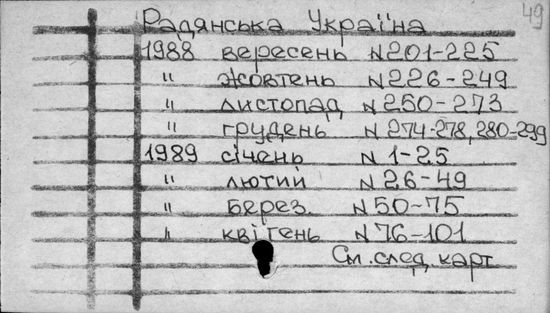 49
Радянська Україна
1988 вересень N 201-225
" жовтень N 226-249
" листопад N 250-273
" грудень N 274-278, 280-299
1989 січень N 1-25
" лютий N 26-49
" Берез. N 50-75
" квітень N 76-101
См. след. карт